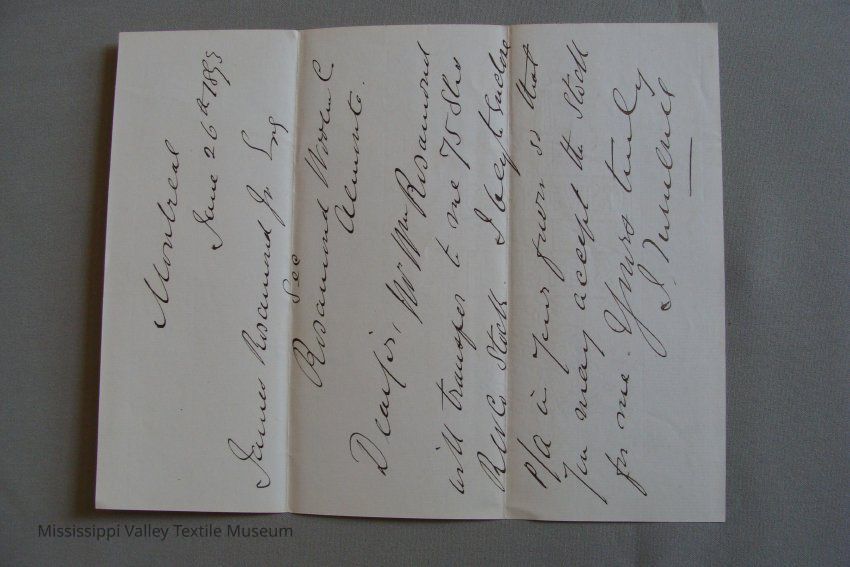 Montreal
June 26th 1893
James Rosamond Jr Esq
Sec
Rosamond Woolen Co
Almonte.
Dear Sir, Mr Wm Rosamond
will transfer to me 75 Shs
RWCo Stock. I beg to enclose
P/A in your favor so that
you may accept the Stock
for me. Yours truly
Mississippi Valley Textile Museum